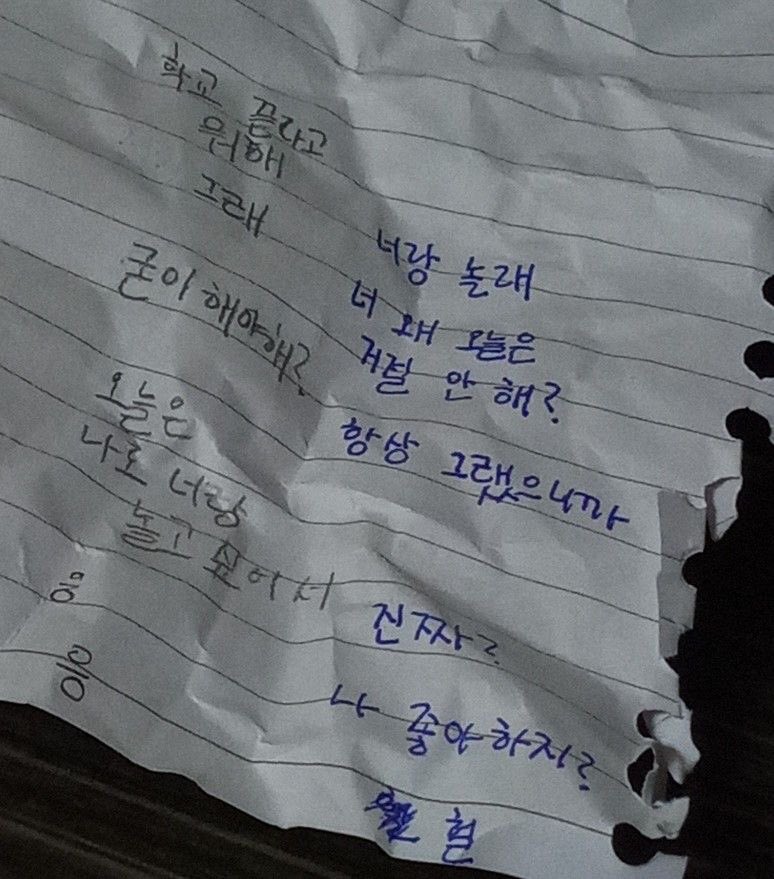 학교 끝라고
뭐해
너랑 놀래
그래
너 왜 오늘은
거절 안 해?
굳이 해야해?
항상 그랬으니까
오늘은
나도 너랑
놀고 싶어서
진짜?
응
나 좋아하지?
응
헐